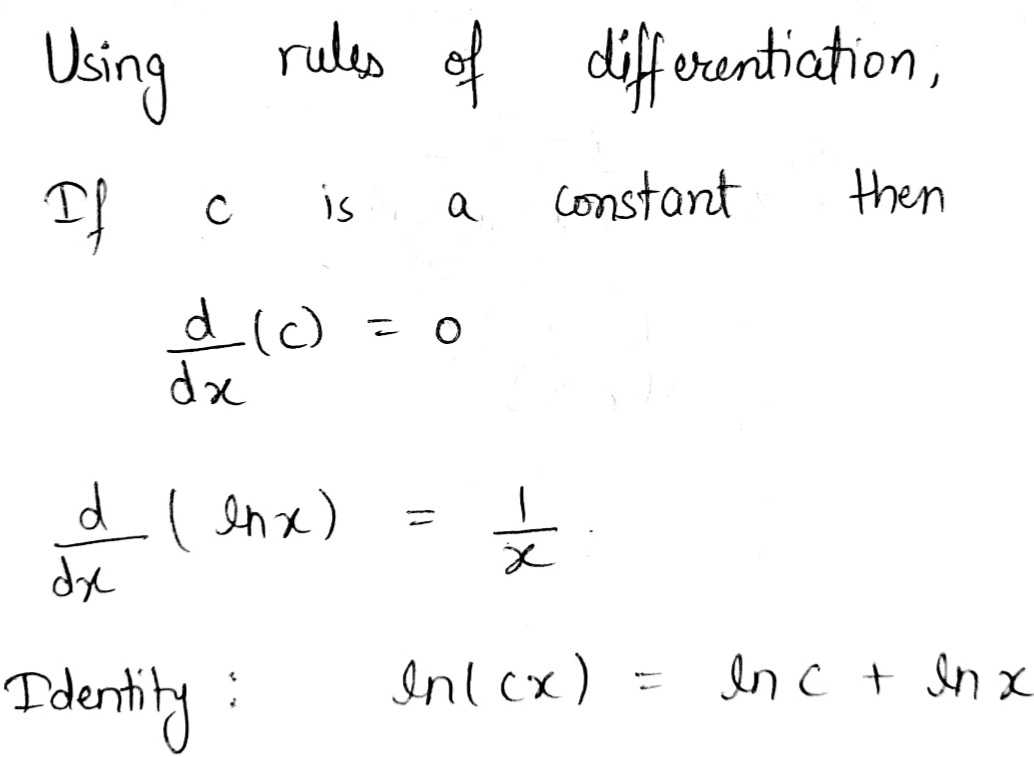 Using rules of differentiation,
If c is a constant then
d/dx (c) = 0
d/dx (ln x) = 1/x.
Identity : ln(cx) = ln c + ln x